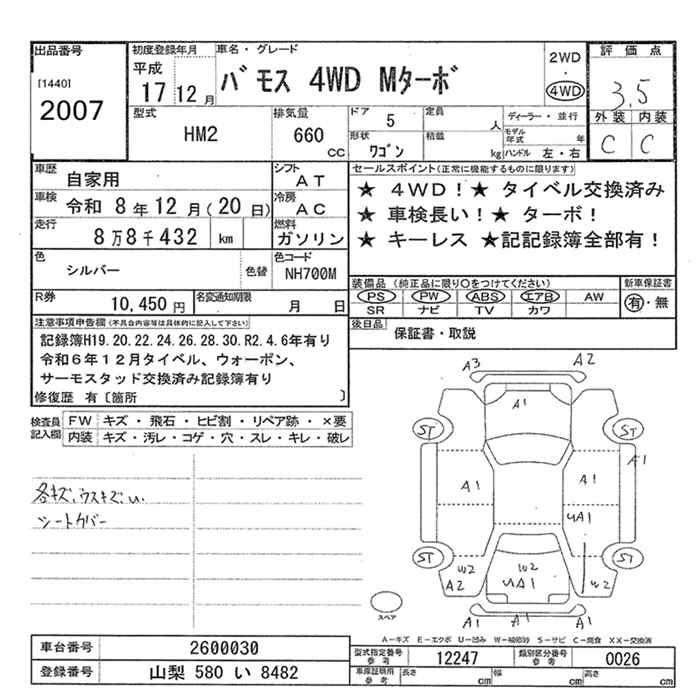 出品番号
[1440]
2007
初度登録年月
平成
17 12月
車名・グレード
バモス 4WD Mターボ
2WD
・
4WD
評価点
3.5
外装 内装
C C
型式
HM2
排気量
660
CC
ドア 5
定員
人
形状
ワゴン
積載
kg
ディーラー・並行
モデル年式
年
ハンドル 左・右
車歴
自家用
シフト
AT
車検
令和 8年 12月(20日)
冷房
AC
走行
8万8千432 km
燃料
ガソリン
色
シルバー
色替
色コード
NH700M
R券
10,450円
名変通知期限
月 日
セールスポイント(正常に機能するものに限ります)
★ 4WD!★ タイベル交換済み
★ 車検長い!★ ターボ!
★ キーレス ★記記録簿全部有!
装備品 (純正品に限り○をつけてください)
PS PW ABS エアB AW
SR ナビ TV カワ
新車保証書
有・無
後日品
保証書・取説
注意事項申告欄(不具合内容等は具体的に記入して下さい)
記録簿H19.20.22.24.26.28.30.R2.4.6年有り
令和6年12月タイベル、ウォーポン、
サーモスタッド交換済み記録簿有り
修復歴 有〔箇所 〕
検査員
記入欄
FW キズ・飛石・ヒビ割・リペア跡・×要
内装 キズ・汚レ・コゲ・穴・スレ・キレ・破レ
各キズ、ウスキズ、
シートカバー
A3 A2
A1
ST ST
A1
A1 A1
UA1
ST ST
W2 W2 W2
A2 UA1
A1 A1 A1
スペア
A−キズ E−エクボ U−凹み W−補修跡 S−サビ C−腐食 XX−交換済
車台番号 2600030
登録番号 山梨 580 い 8482
型式指定番号
参考
12247
類別区分番号
参考
0026
車庫証明用
参考
長さ cm 幅 cm 高さ cm